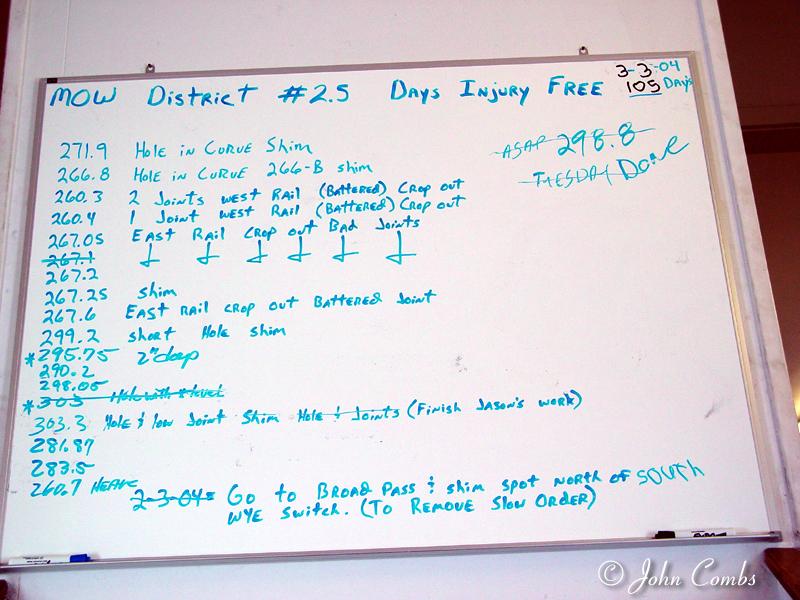 MOW District #2.5 Days Injury Free 3-3-04
105 Days
ASAP 298.8
TUESDAY Done
271.9 Hole in Curve Shim
266.8 Hole in Curve 266-B shim
260.3 2 Joints west Rail (Battered) Crop out
260.4 1 Joint west Rail (Battered) Crop out
267.05 East Rail Crop out Bad Joints
267.1
267.2
267.25 shim
267.6 East rail crop out Battered Joint
299.2 short Hole shim
*295.75 2" deep
290.2
298.05
*303 Hole with level
303.3 Hole & low Joint Shim Hole & Joints (Finish Jason's work)
281.87
283.5
260.7 Heave
2-3-04 Go to Broad Pass & shim spot north of South
wye switch. (To Remove Slow Order)
© John Combs